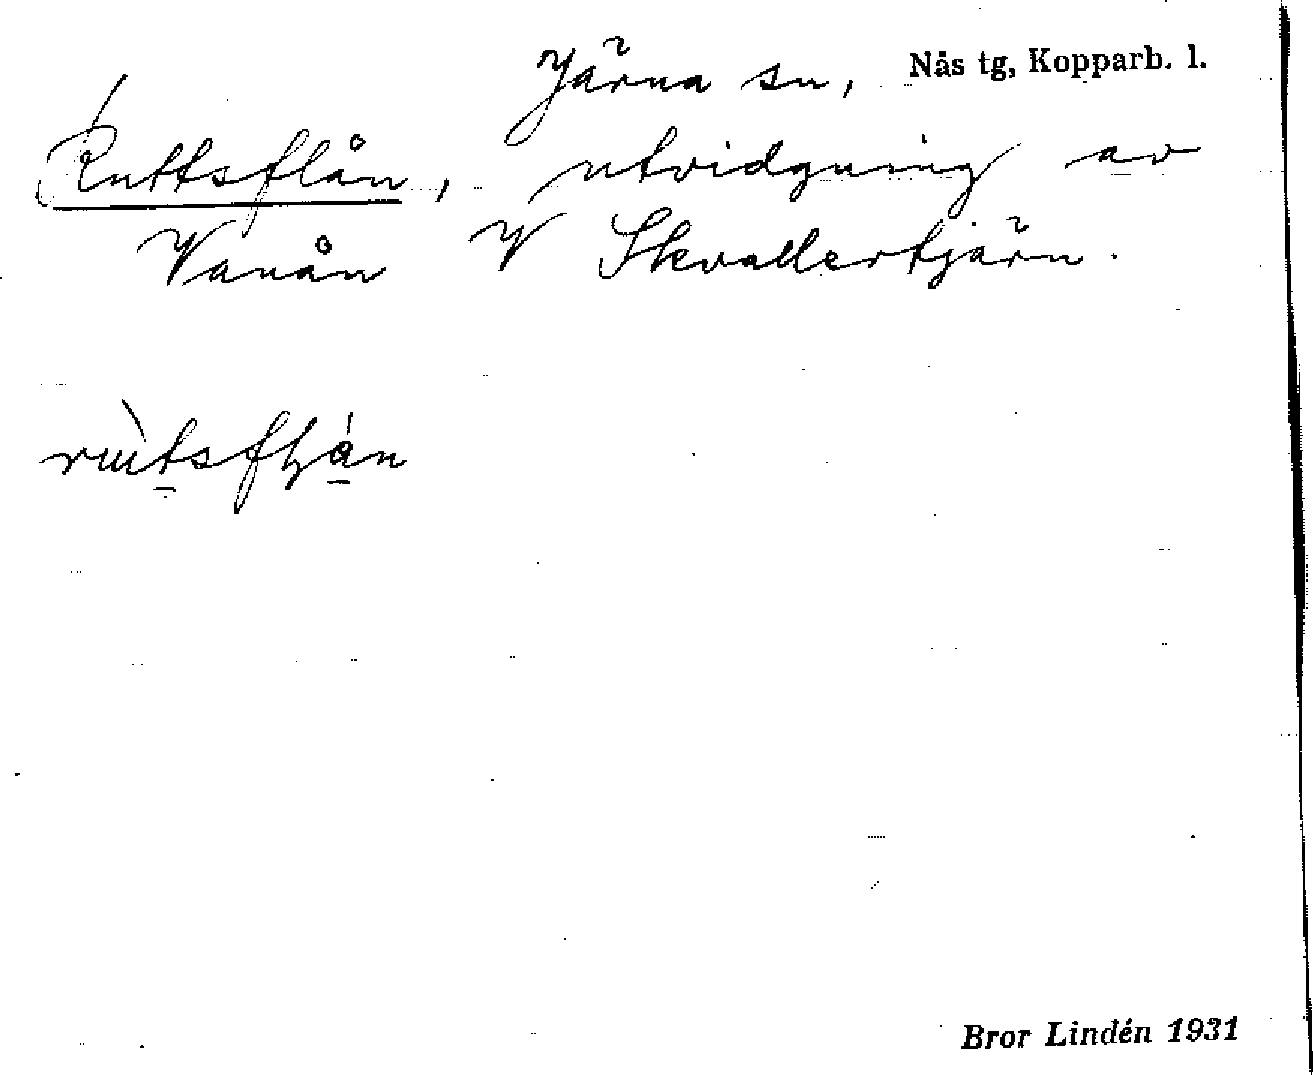 Järna sn, Nås tg, Kopparb. l.
Ruttsflån, utvidgning av
Vanån V Skvallertjärn.
Bror Lindén 1931